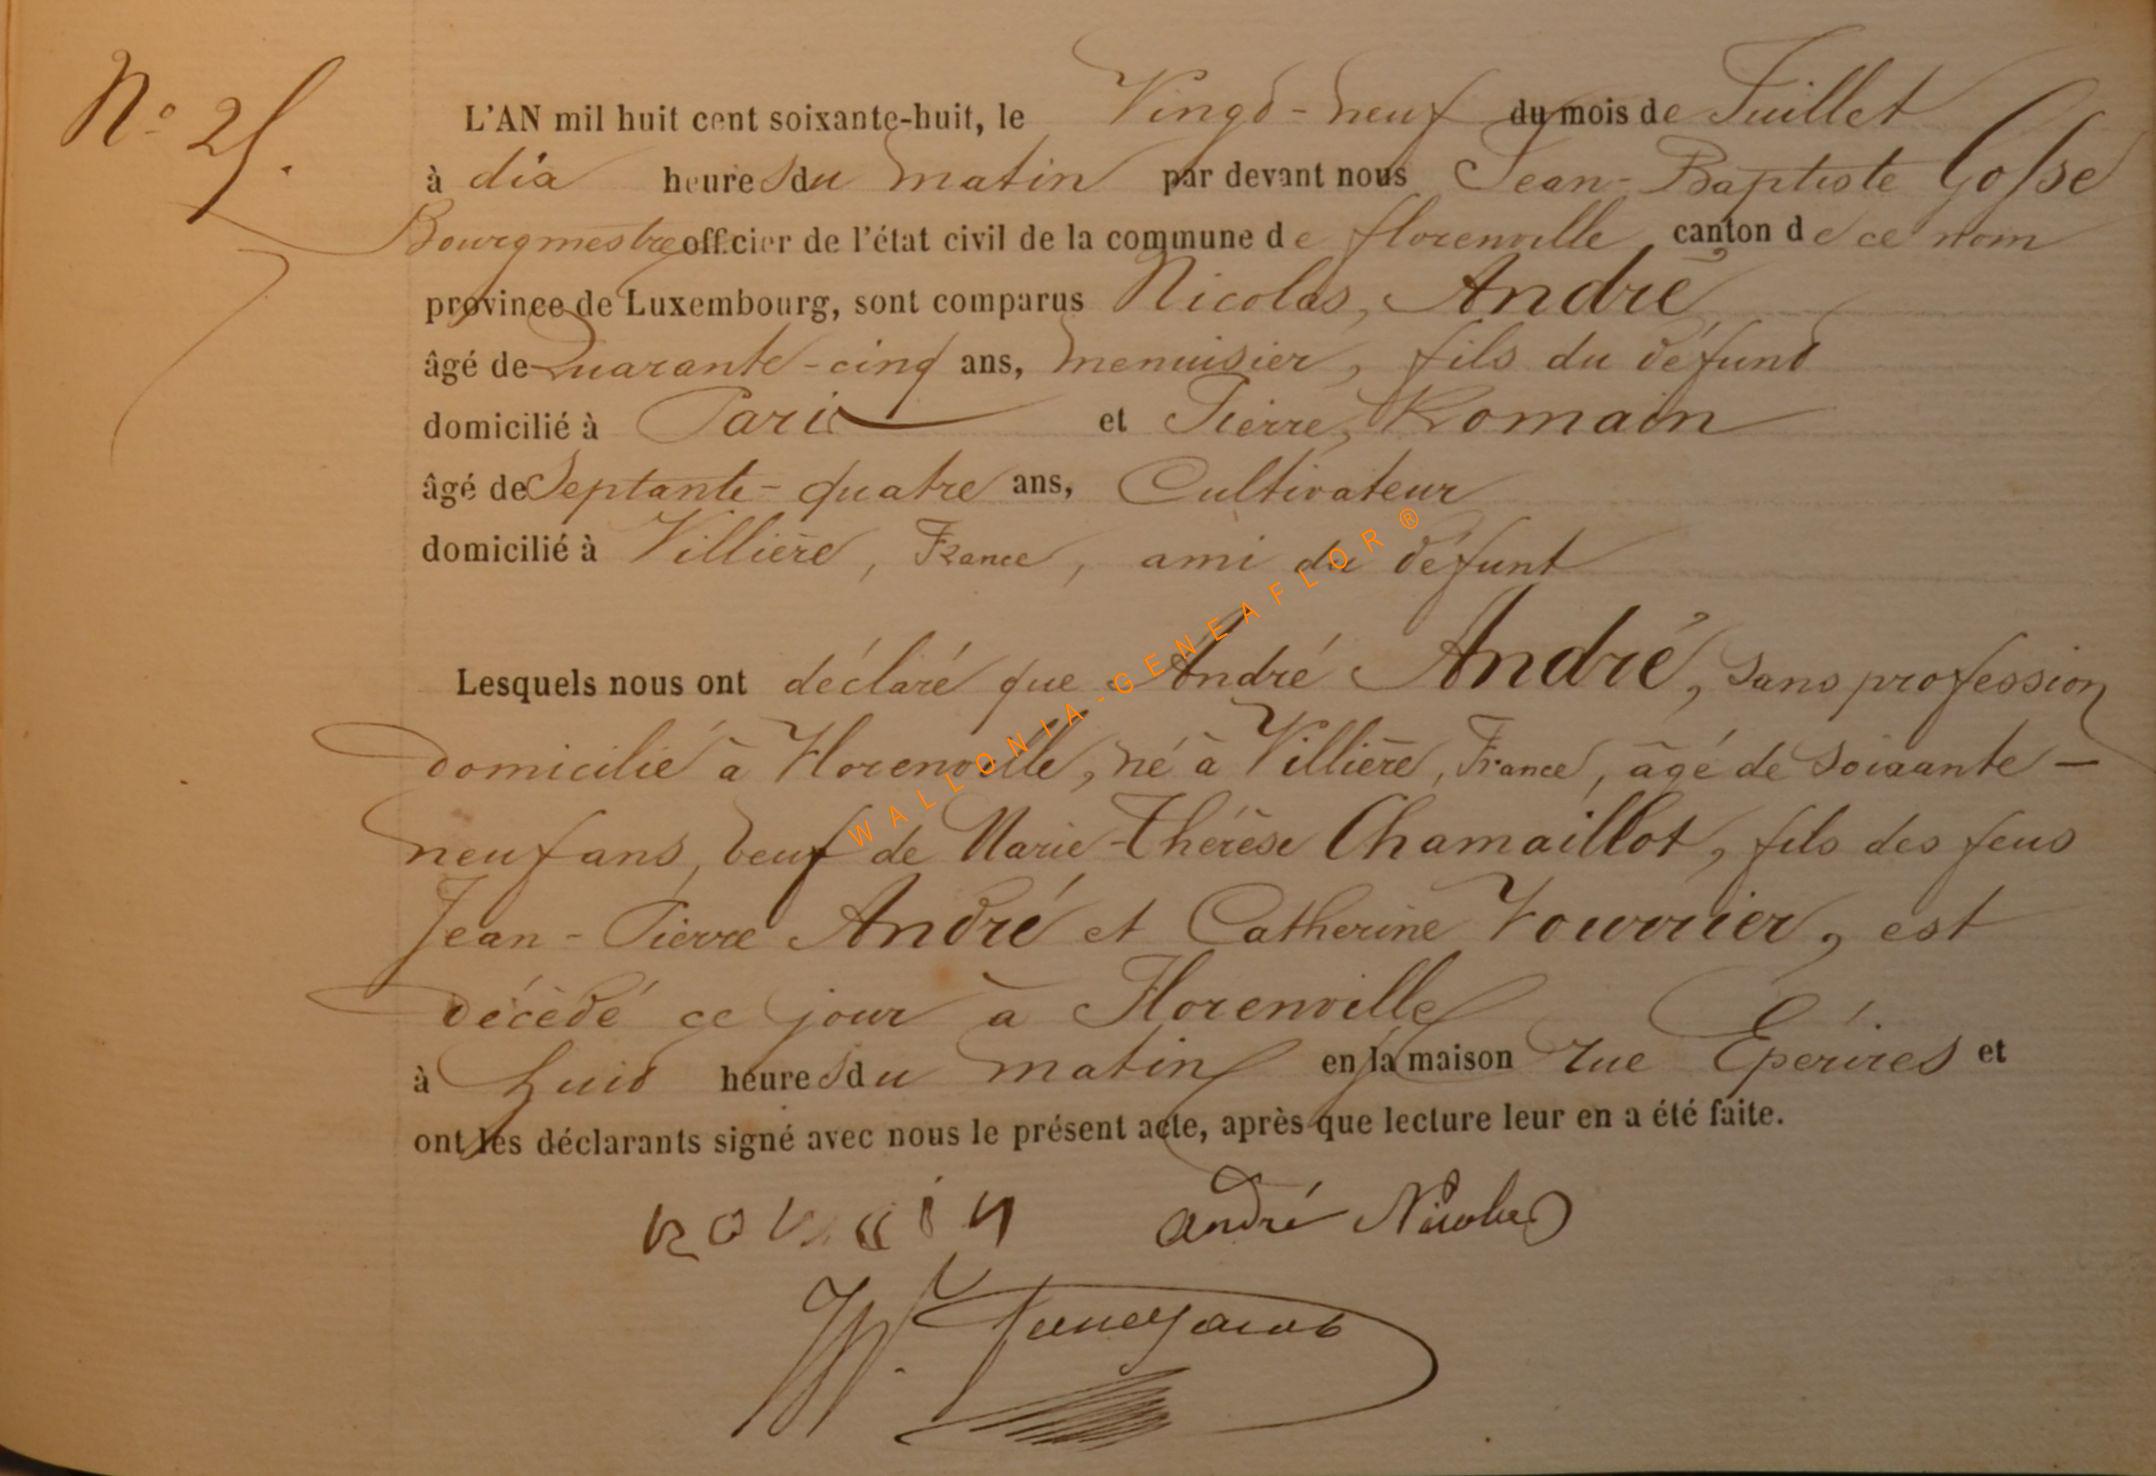 N° 25.
L'AN mil huit cent soixante-huit, le Vingt-neuf du mois de Juillet
à dix heures du matin par devant nous Jean-Baptiste Gosse
Bourgmestre officier de l'état civil de la commune de florenville, canton de ce nom
province de Luxembourg, sont comparus Nicolas, André
âgé de Quarante-cinq ans, menuisier, fils du défunt
domicilié à Paris et Pierre, Romain
âgé de Septante-quatre ans, Cultivateur
domicilié à Villière, France, ami du défunt
Lesquels nous ont déclaré que André André, sans profession
domicilié à Florenville, né à Villière, France, âgé de soixante-
neuf ans, veuf de Marie-Thérèse Chamaillot, fils des feus
Jean-Pierre André et Catherine, est
décédé ce jour à Florenville
à huit heures du matin en la maison rue Epérires et
ont les déclarants signé avec nous le présent acte, après que lecture leur en a été faite.
ROMAIN andré Nicolas
WALLONIA-GENEAFLOR®